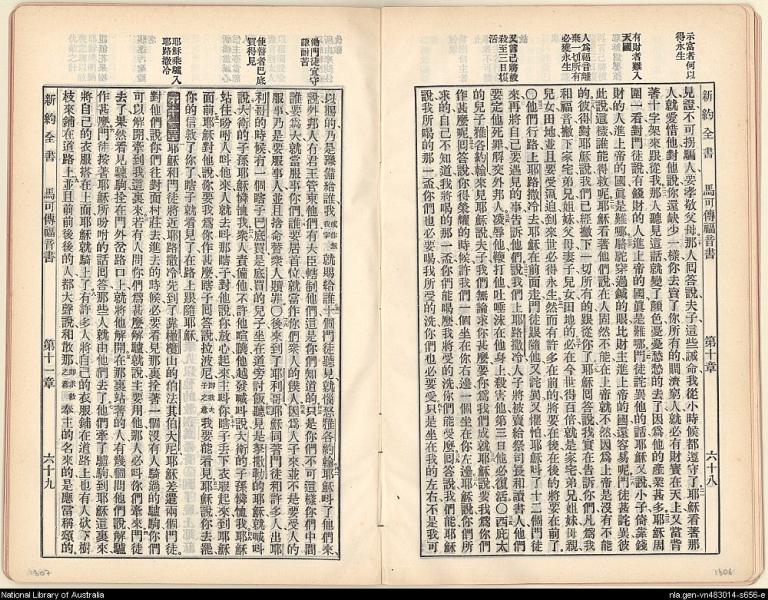 示富者何以
得永生
有財者難入
天國
人為福音離
棄一切所有
必獲永生
又言己將被
殺至三日復
活
新約全書 馬可傳福音書 第十章 六十八
見證不可拐騙人要孝敬父母那人回答說夫子這些誡命我從小時候都遵守了耶穌看著那
人就愛惜他對他說你還缺少一樣你去賣了你所有的賙濟窮人就必有財寶在天上又當背
著十字架來跟從我那人聽見這話就變了顏色憂憂愁愁的去了因為他的產業甚多耶穌周
圍一看對門徒說有錢財的人進上帝的國眞是難哪門徒詫異他的話耶穌又說小子倚靠錢
財的人進上帝的國眞是難哪駱駝穿過鍼的眼比財主進上帝的國還容易呢門徒甚詫異彼
此說這樣誰能得救呢耶穌看著他們說在人固然不能在上帝就不然因為上帝是沒有不能
的彼得對耶穌說我們已經撇下一切所有的跟從你了耶穌回答說我實在告訴你們凡為我
和福音撇下家宅弟兄姐妹父母妻子兒女田地的必在今世得百倍就是家宅弟兄姐妹母親
兒女田地並且要受逼迫到來世必得永生然而有許多在前的將要在後在後的將要在前了
〇他們行路上耶路撒冷去耶穌在前面走門徒跟隨他又詫異又懼怕耶穌叫了十二個門徒
來再將自己要遇見的事告訴他們說我們上耶路撒冷人子將被賣給祭司長和讀書人他們
要定他死罪解交外邦人凌辱他鞭打他吐唾沫在他身上殺害他第三日他必復活〇西庇太
的兒子雅各約翰來見耶穌說夫子我們無論求你甚麼要你為我們成就耶穌說要我為你們
作甚麼呢回答說你得榮耀的時候許我們一個坐在你右邊一個坐在你左邊耶穌說你們所
求的自己不知道我將喝的那一盃你們能喝麼我將受的洗你們能受麼回答說我們能耶穌
說我所喝的那一盃你們也必要喝我所受的洗你們也必要受只是坐在我的左右不是我可
衛門徒宜守
謙辭苦
使瞽者巴底
買得見
耶穌乘驢入
耶路撒冷
新約全書 馬可傳福音書 第十一章 六十九
以賜的乃是豫備給誰我就賜給誰十個門徒聽見就惱怒雅各約翰耶穌叫了他們來
說外邦人有君王管束他們有大臣轄制他們這是你們知道的只是你們不可這樣你們中間
誰要為大就當服事你們誰要居首位就當作你們衆人的僕人因為人子來並不是要受人的
服事乃是要服事人並且捨命替衆人贖罪〇後來到了耶利哥耶穌同著門徒和許多人出耶
利哥的時候有一個瞎子巴底買是底買的兒子坐在道旁討飯聽見是拿撒勒的耶穌就喊叫
說大衛的子孫耶穌憐憫我衆人責備他不許他喧嚷他越發喊叫說大衛的子孫憐憫我耶穌
站住吩咐人叫他來人就去叫那瞎子對他說你放心起來主叫你瞎子丟下衣服起來到耶穌
面前耶穌對他說你要我為你作甚麼瞎子回答說拉波尼我要能看見耶穌說你去罷
你的信救了你了瞎子就看見了在路上跟隨耶穌
第十一章耶穌和門徒將近耶路撒冷先到了靠橄欖山的伯法其伯大尼耶穌差遣兩個門徒
對他們說你們往對面村莊去進去的時候必要看見那裏拴著一個沒有人騎過的驢駒你們
可以解開牽到我這裏來若有人問你們為甚麼解驢就說主要用他那人必叫你們牽來門徒
去了果然看見驢駒拴在門外岔路口上就將他解開在那裏站著的人有幾個問他們說解驢
作甚麼門徒按著耶穌所吩咐的話回答那些人就由他們去了他們牽了驢駒到耶穌這裏來
將自己的衣服搭在上面耶穌就騎上了有許多人將自己的衣服鋪在道路上也有人砍下樹
枝來鋪在道路上並且前前後後的人都大聲說和散那奉主的名來的是應當稱頌的
1307
1306
National Library of Australia
nla.gen-vn483014-s656-e